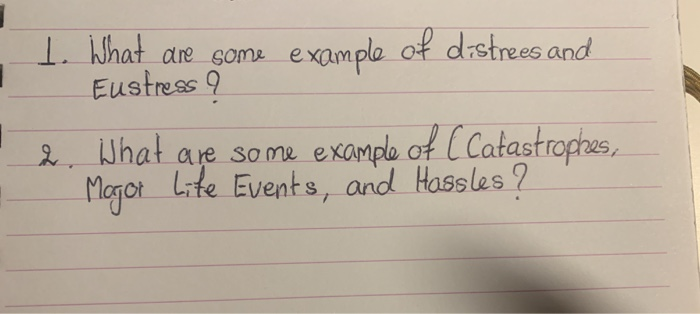 1. What are some example of distrees and
Eustress?
2. What are some example of (Catastrophes,
Major Life Events, and Hassles?